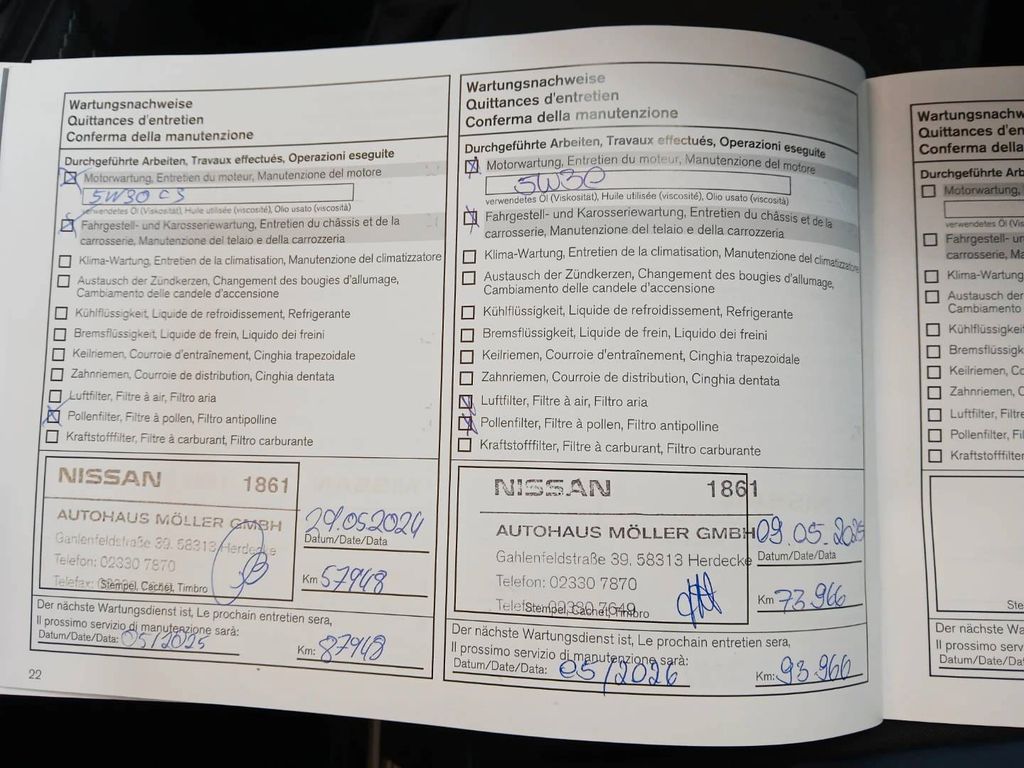 Wartungsnachweise
Quittances d'entretien
Conferma della manutenzione
Durchgeführte Arbeiten, Travaux effectués, Operazioni eseguite
Motorwartung, Entretien du moteur, Manutenzione del motore
5W30 C3
verwendetes Öl (Viskosität), Huile utilisée (viscosité), Olio usato (viscosità)
Fahrgestell- und Karosseriewartung, Entretien du châssis et de la
carrosserie, Manutenzione del telaio e della carrozzeria
Klima-Wartung, Entretien de la climatisation, Manutenzione del climatizzatore
Austausch der Zündkerzen, Changement des bougies d'allumage,
Cambiamento delle candele d'accensione
Kühlflüssigkeit, Liquide de refroidissement, Refrigerante
Bremsflüssigkeit, Liquide de frein, Liquido dei freini
Keilriemen, Courroie d'entraînement, Cinghia trapezoidale
Zahnriemen, Courroie de distribution, Cinghia dentata
Luftfilter, Filtre à air, Filtro aria
Pollenfilter, Filtre à pollen, Filtro antipolline
Kraftstofffilter, Filtre à carburant, Filtro carburante
NISSAN 1861
AUTOHAUS MÖLLER GMBH
Gahlenfeldstraße 39, 58313 Herdecke
Telefon: 02330 7870
Telefax:
Stempel, Cachet, Timbro
29.05.2024
Datum/Date/Data
Km 57948
Der nächste Wartungsdienst ist, Le prochain entretien sera,
Il prossimo servizio di manutenzione sarà:
Datum/Date/Data: 05/2025 Km: 87948
22
Wartungsnachweise
Quittances d'entretien
Conferma della manutenzione
Durchgeführte Arbeiten, Travaux effectués, Operazioni eseguite
Motorwartung, Entretien du moteur, Manutenzione del motore
5W30
verwendetes Öl (Viskosität), Huile utilisée (viscosité), Olio usato (viscosità)
Fahrgestell- und Karosseriewartung, Entretien du châssis et de la
carrosserie, Manutenzione del telaio e della carrozzeria
Klima-Wartung, Entretien de la climatisation, Manutenzione del climatizzatore
Austausch der Zündkerzen, Changement des bougies d'allumage,
Cambiamento delle candele d'accensione
Kühlflüssigkeit, Liquide de refroidissement, Refrigerante
Bremsflüssigkeit, Liquide de frein, Liquido dei freini
Keilriemen, Courroie d'entraînement, Cinghia trapezoidale
Zahnriemen, Courroie de distribution, Cinghia dentata
Luftfilter, Filtre à air, Filtro aria
Pollenfilter, Filtre à pollen, Filtro antipolline
Kraftstofffilter, Filtre à carburant, Filtro carburante
NISSAN 1861
AUTOHAUS MÖLLER GMBH
Gahlenfeldstraße 39, 58313 Herdecke
Telefon: 02330 7870
Telefax: 02330 7649
Stempel, Cachet, Timbro
09.05.2025
Datum/Date/Data
Km 73.966
Der nächste Wartungsdienst ist, Le prochain entretien sera,
Il prossimo servizio di manutenzione sarà:
Datum/Date/Data: 05/2026 Km: 93.966
Wartungsnachw
Quittances d'en
Conferma della
Durchgeführte Arb
Motorwartung,
verwendetes Öl (Vis
Fahrgestell- un
carrosserie, Ma
Klima-Wartung
Austausch der
Cambiamento
Kühlflüssigkeit
Bremsflüssigk
Keilriemen, Co
Zahnriemen, C
Luftfilter, Filt
Pollenfilter, Fi
Kraftstofffilter
Ste
Der nächste Wa
Il prossimo servi
Datum/Date/Dat